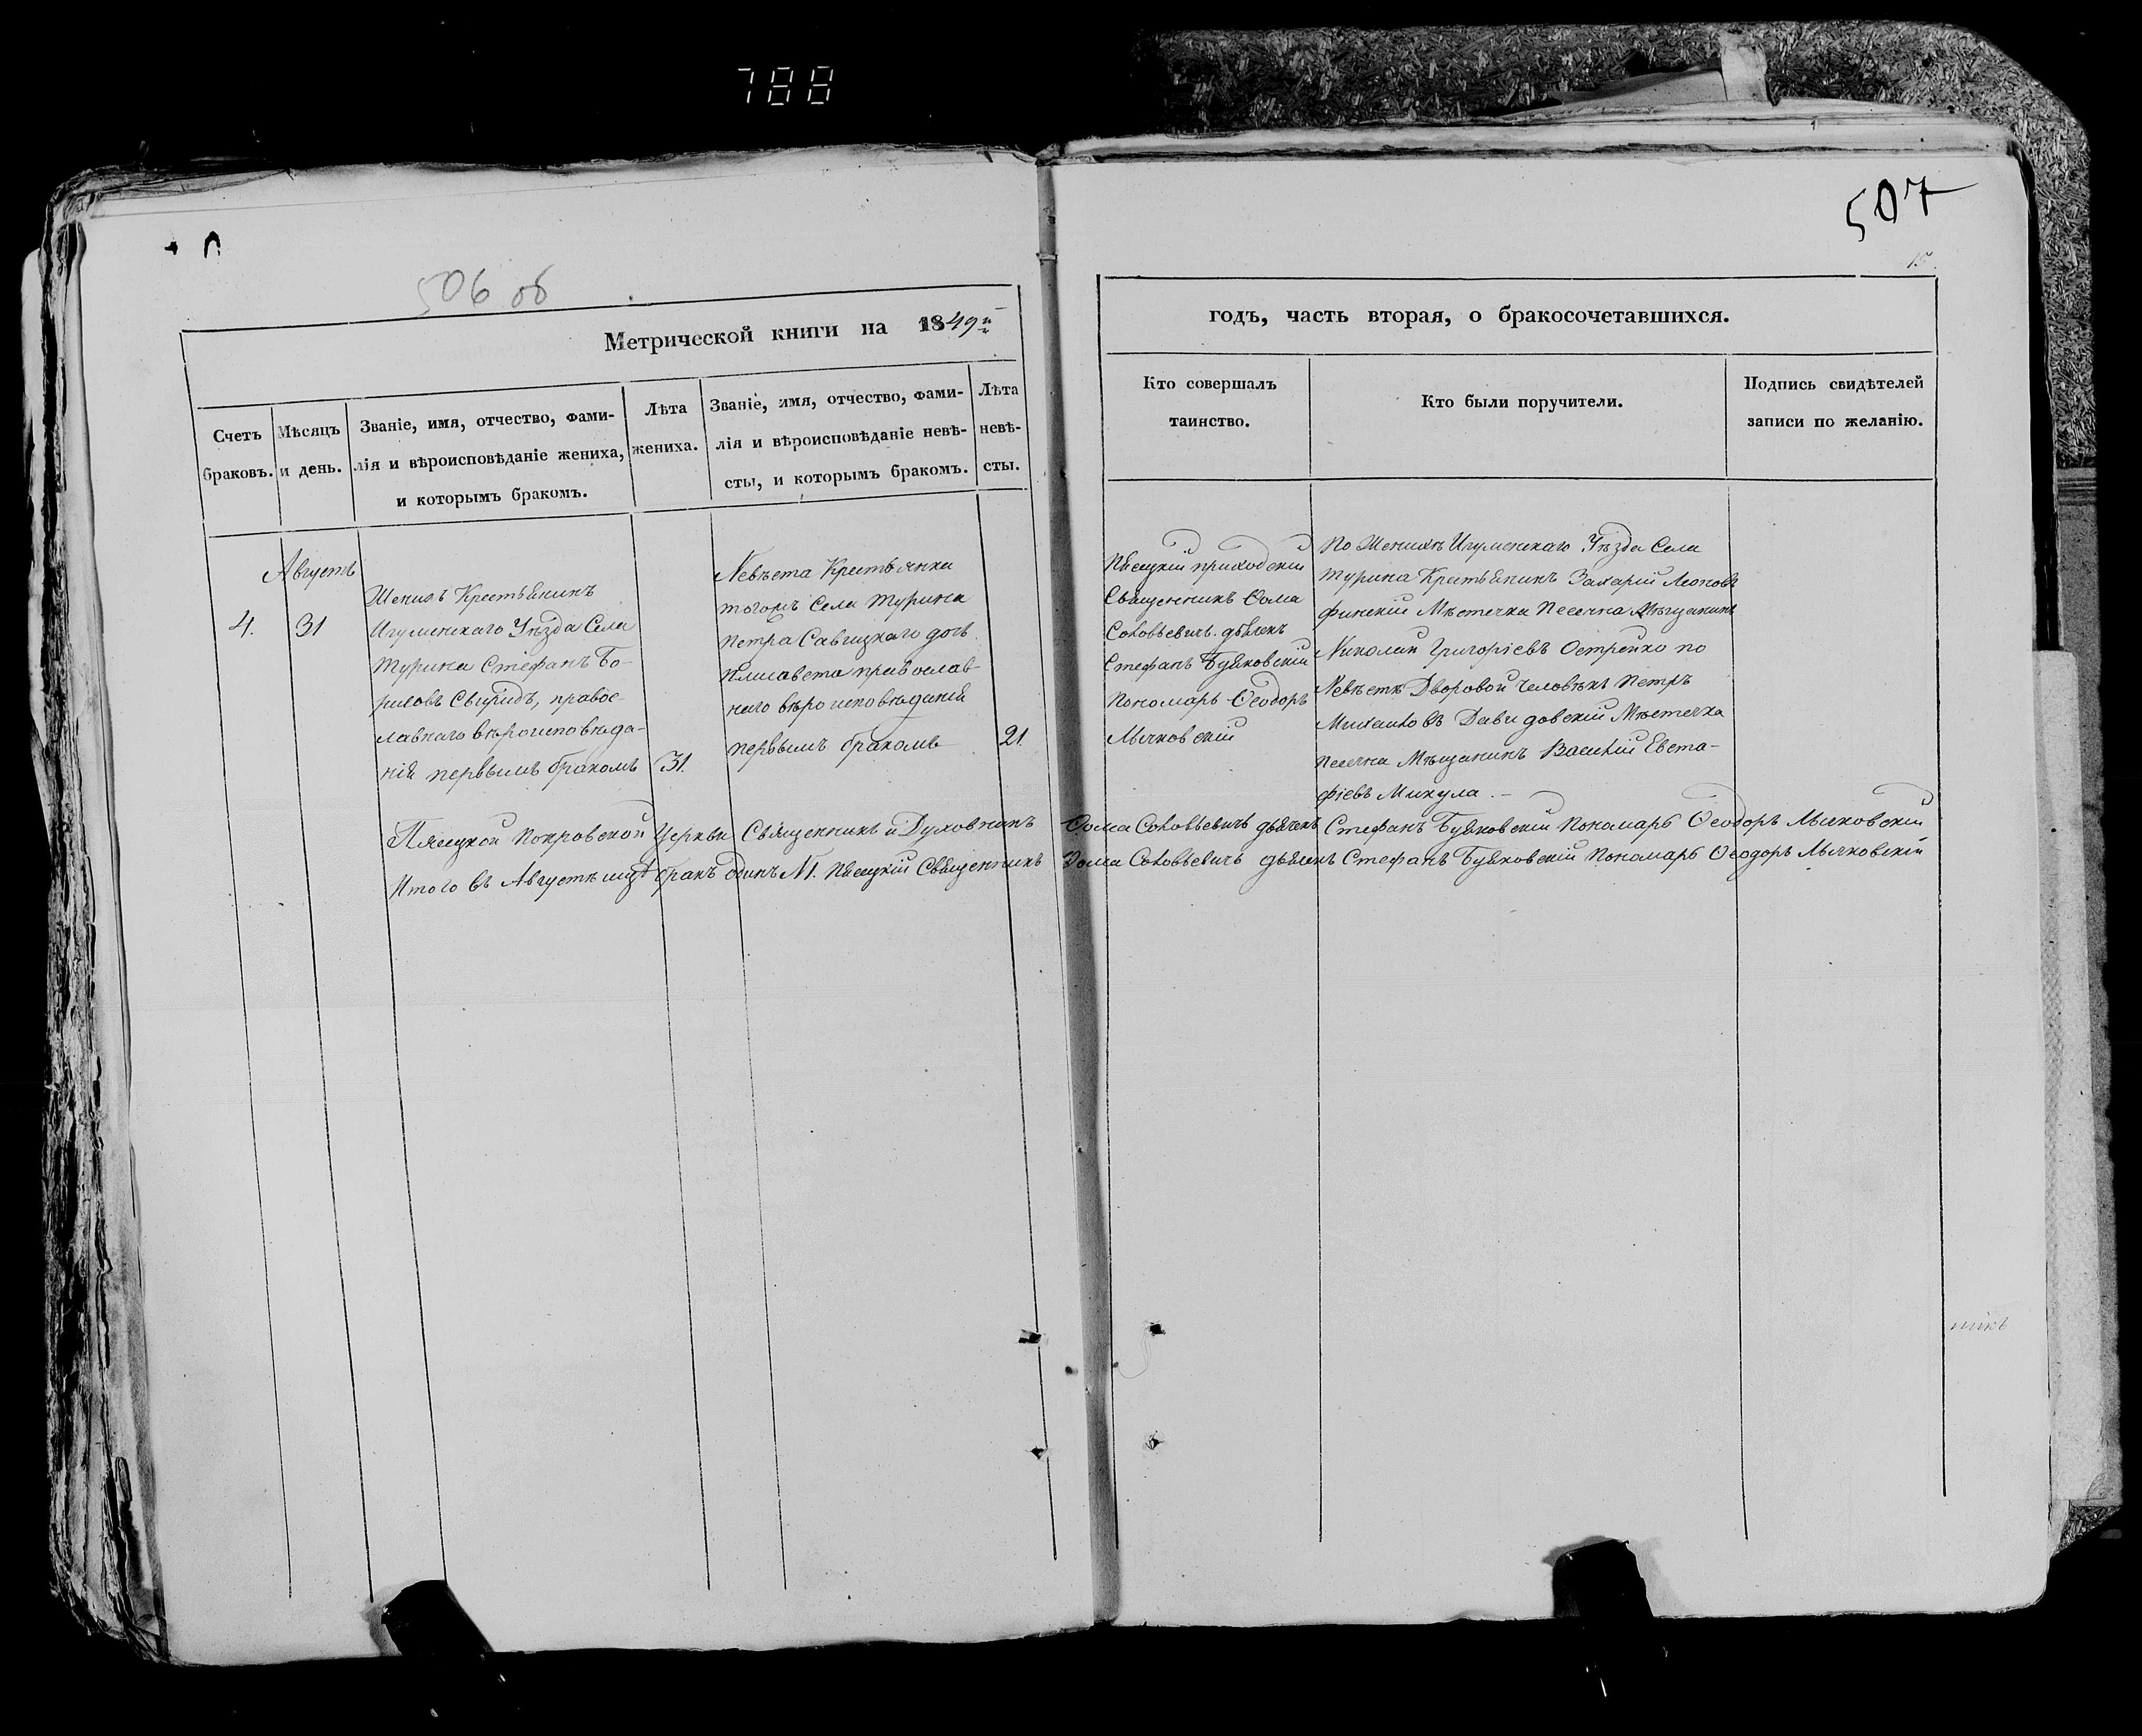 788
507
15.
506 об
Метрической книги на 1849й
годъ, часть вторая, о бракосочетавшихся.
Счетъ
браковъ.
Мѣсяцъ
и день.
Званіе, имя, отчество, фами-
лія и вѣроисповѣданіе жениха,
и которымъ бракомъ.
Лѣта
жениха.
Званіе, имя, отчество, фами-
лія и вѣроисповѣданіе невѣ-
сты, и которымъ бракомъ.
Лѣта
невѣ-
сты.
Кто совершалъ
таинство.
Кто были поручители.
Подпись свидѣтелей
записи по желанію.
4.
Августъ
31
Женихъ Крестьянинъ
Игуменскаго Уѣзда Села
Турина Стефанъ Бо-
рисовъ Свиридъ, правос-
лавнаго вѣроисповѣда-
нія первымъ бракомъ
31.
Невѣста Крестьянка
тогожъ Села Турина
Петра Савицкаго дочь
Елисавета православ-
наго вѣроисповѣданія
первымъ бракомъ
21.
Пѣсецкій приходскій
Священникъ Ѳома
Соловьевичъ. дьячекъ
Стефанъ Буяковскій
Пономарь Ѳеодоръ
Лычковскій
По Женихѣ Игуменскаго Уѣзда Села
Турина Крестьянинъ Захарій Леоновъ
финскій Мѣстечка Песечна Мѣщанинъ
Николай Григоріевъ Острейко по
Невѣстѣ Дворовой человѣкъ Петръ
Михайловъ Давидовскій Мѣстечка
Песечна Мѣщанинъ Василій Евста-
фіевъ Микула.
Пясецкой Покровской Церкви Священникъ и Духовникъ Ѳома Соловьевичъ дьячекъ Стефанъ Буяковскій Пономарь Ѳеодоръ Лычковскій
Итого въ Августѣ мцѣ бракъ одинъ №1. Пѣсецкій Священникъ Ѳома Соловьевичъ дьячекъ Стефанъ Буяковскій Пономарь Ѳеодоръ Лычковскій
никъ